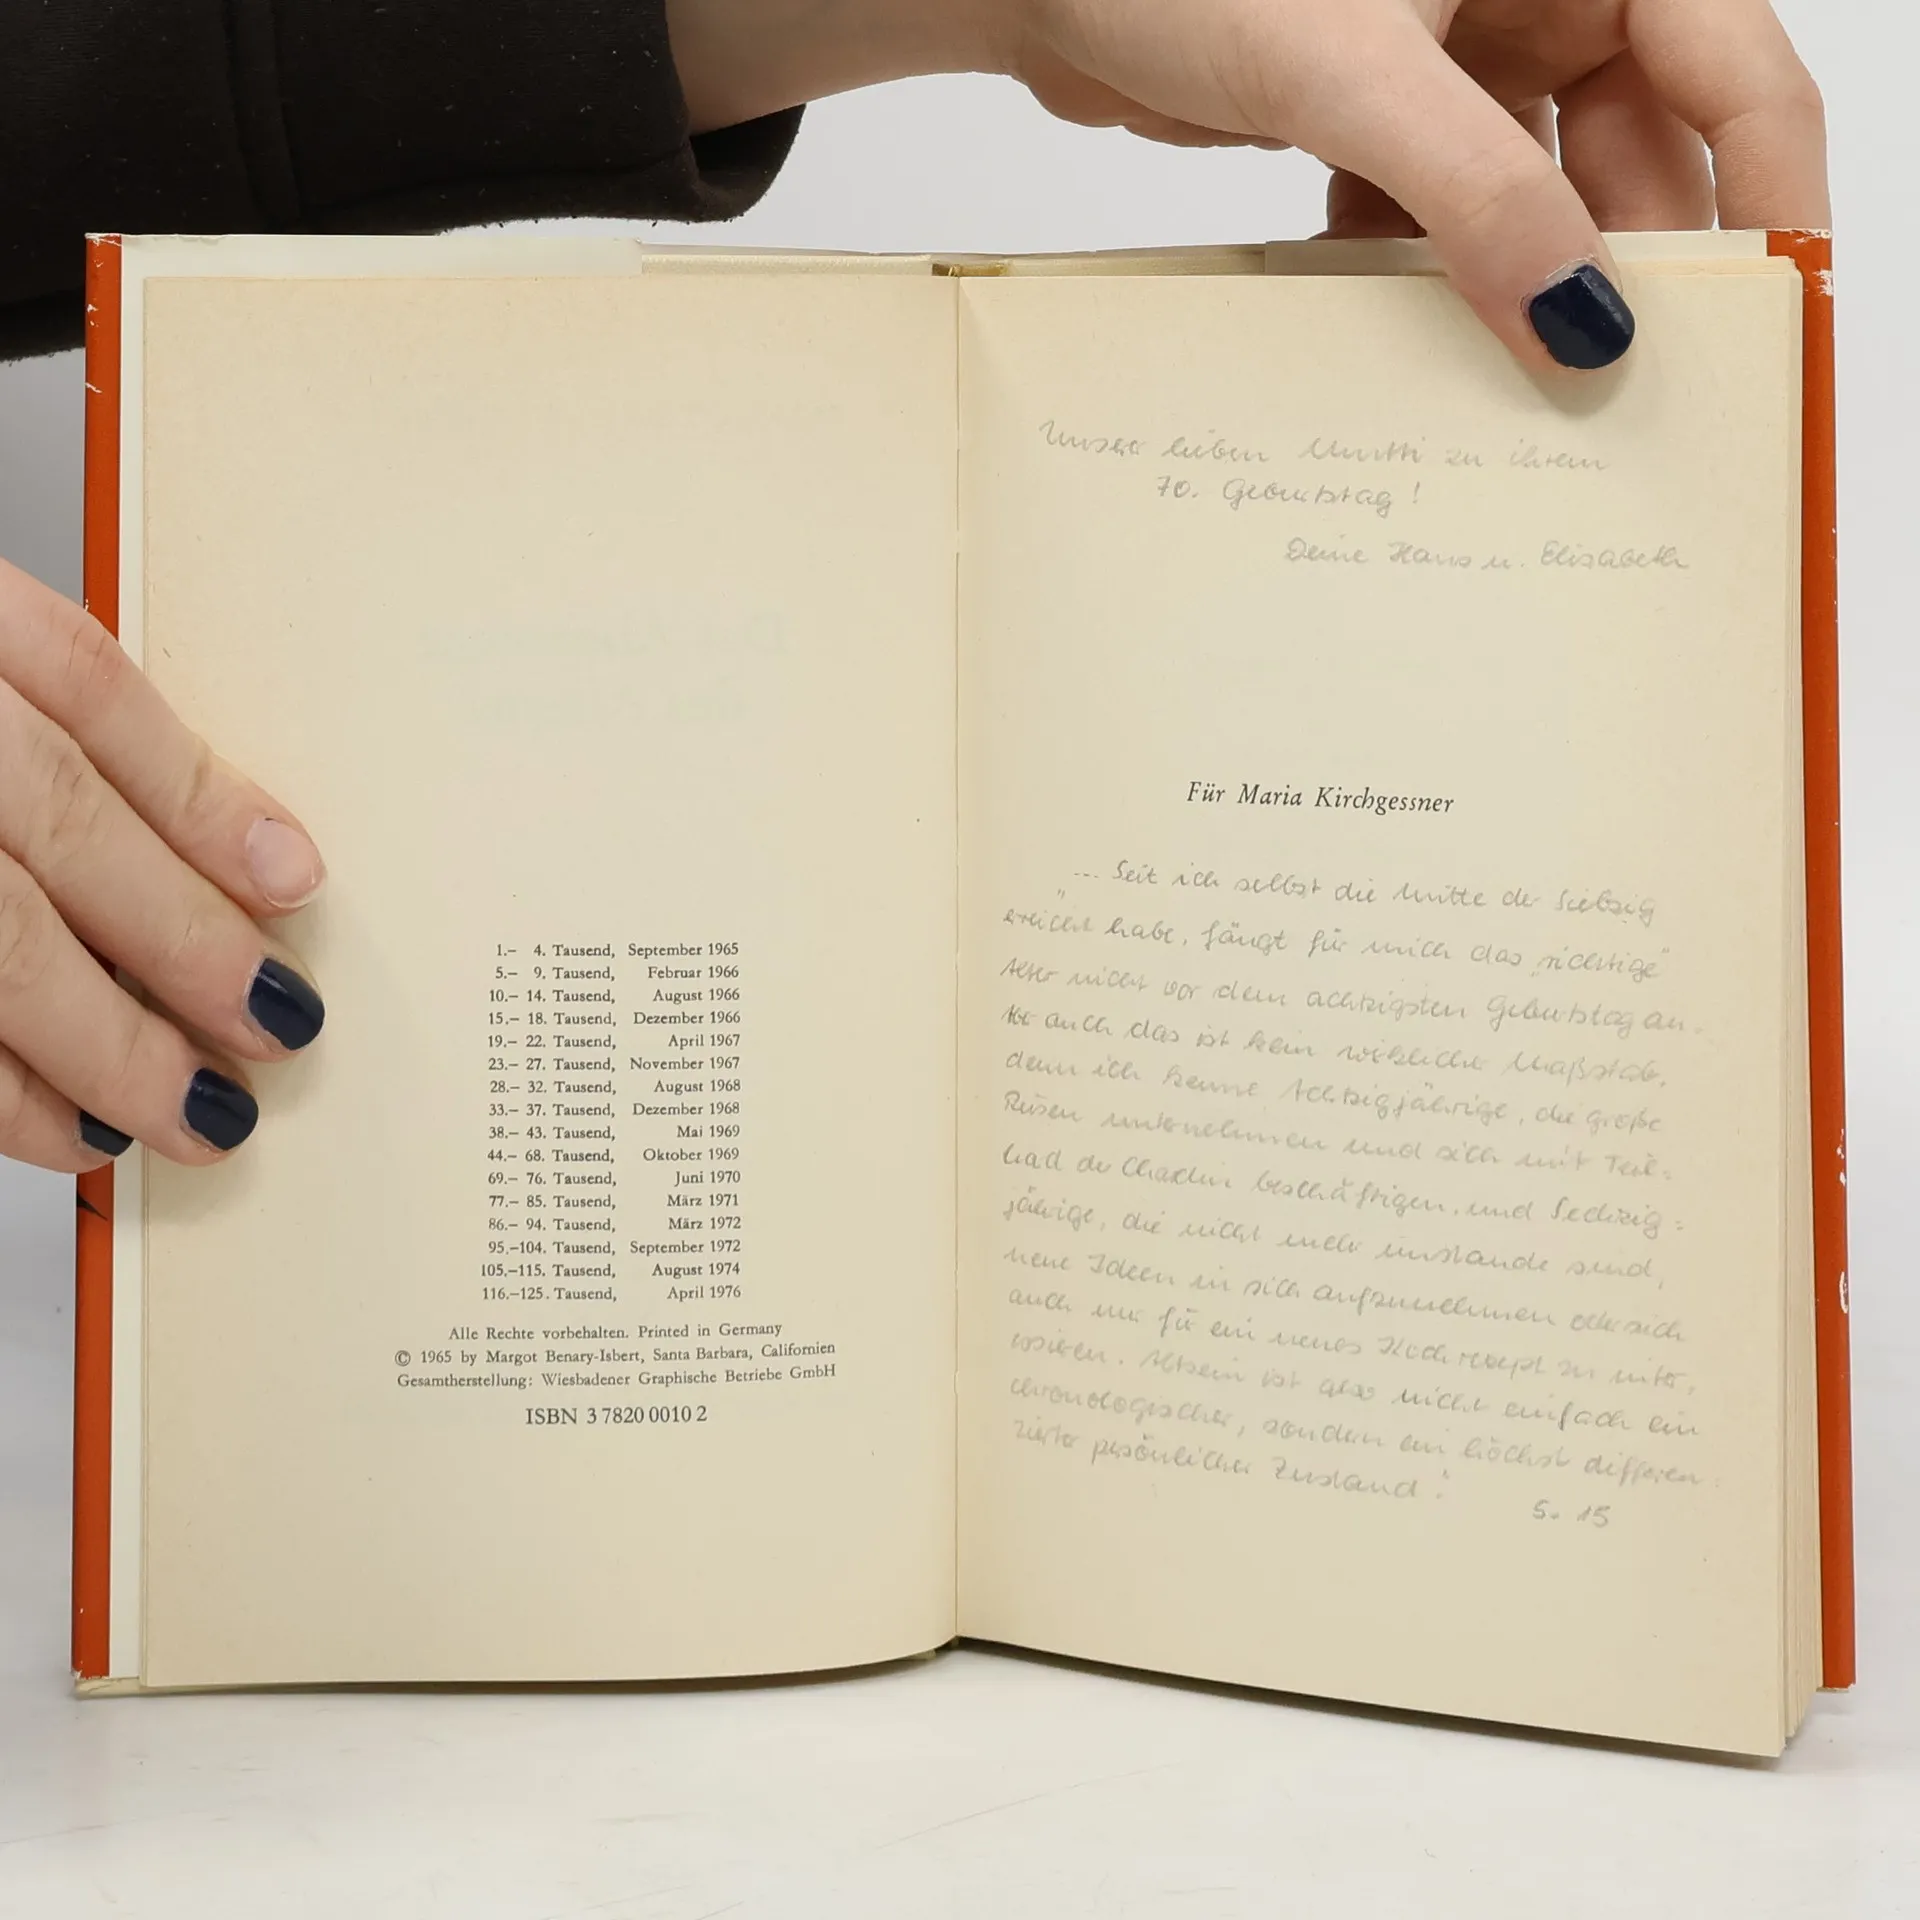 1.– 4. Tausend, September 1965
5.– 9. Tausend, Februar 1966
10.– 14. Tausend, August 1966
15.– 18. Tausend, Dezember 1966
19.– 22. Tausend, April 1967
23.– 27. Tausend, November 1967
28.– 32. Tausend, August 1968
33.– 37. Tausend, Dezember 1968
38.– 43. Tausend, Mai 1969
44.– 68. Tausend, Oktober 1969
69.– 76. Tausend, Juni 1970
77.– 85. Tausend, März 1971
86.– 94. Tausend, März 1972
95.–104. Tausend, September 1972
105.–115. Tausend, August 1974
116.–125. Tausend, April 1976
Alle Rechte vorbehalten. Printed in Germany
© 1965 by Margot Benary-Isbert, Santa Barbara, Californien
Gesamtherstellung: Wiesbadener Graphische Betriebe GmbH
ISBN 3 7820 0010 2
Unserer lieben Mutti zu ihrem
70. Geburtstag!
Deine Hans u. Elisabeth
Für Maria Kirchgessner
„... Seit ich selbst die Mitte der Siebzig
erreicht habe, fängt für mich das „richtige“
Alter nicht vor dem achtzigsten Geburtstag an.
Aber auch das ist kein wirklicher Maßstab,
denn ich kenne Achtzigjährige, die große
Reisen unternehmen und sich mit Teil-
hard de Chardin beschäftigen, und Sechzig-
jährige, die nicht mehr imstande sind,
neue Ideen in sich aufzunehmen oder sich
auch nur für ein neues Kochrezept zu inter-
essieren. Altsein ist also nicht einfach ein
chronologischer, sondern ein höchst differen-
zierter persönlicher Zustand."
S. 15